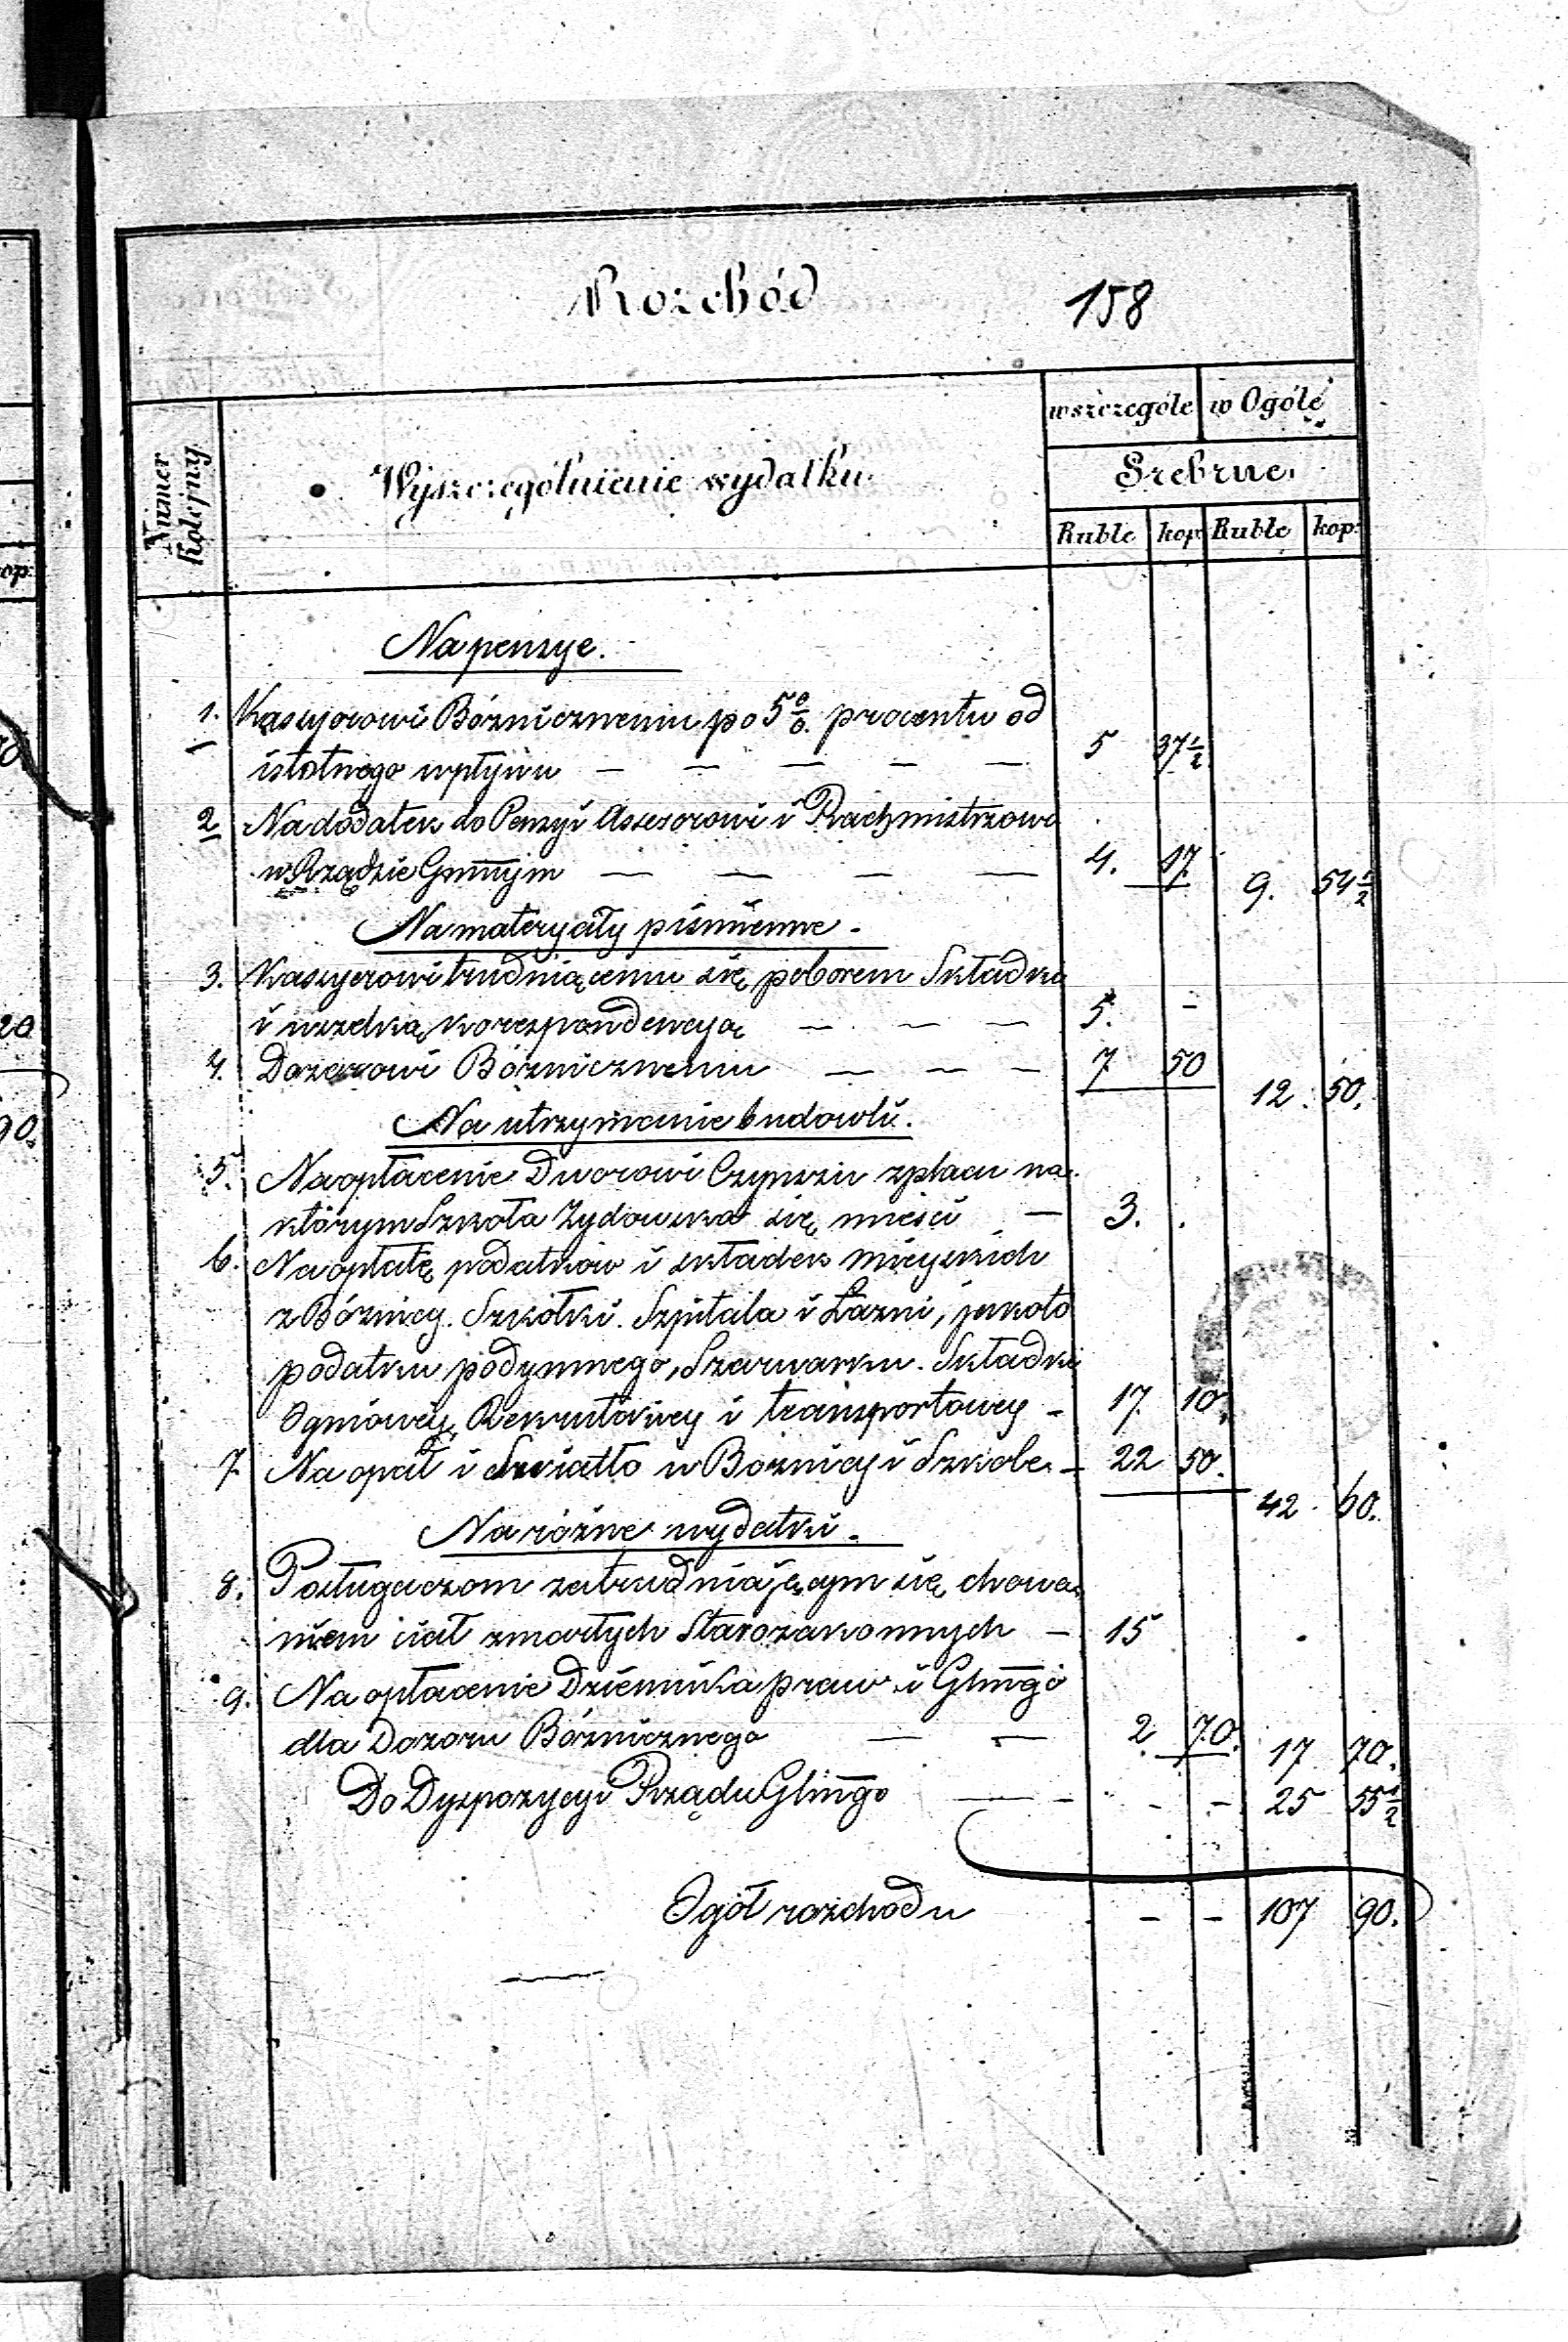 Rozchód 158
Numer kolejny
Wyszczególnienie wydatku
w szczególe w Ogóle
Srebrne.
Ruble kop Ruble kop:
op:
Na pensye.
1. Kassyerowi Bóźnicznemu po 5 % procentu od
istotnego wpływu — — — — — 5 37 1/2
2 Na dodatek do Pensyi Assesorowi i Rachmistrzowi
w Rządzie Gmnym — — — — 4. 17. 9. 54 1/2
Na materyały piśmienne -
3. Kassyerowi trudniącemu się poborem Składki
i wszelką korespondencyą — — — 5. -
4. Dozorowi Bóźnicznemu — — — 7 50 12. 50.
Na utrzymanie budowli.
5. Na opłacenie Dworowi Czynszu z placu na
którym Szkoła Żydowska się mieści — 3. .
6. Na opłatę podatków i składek mieyskich
z Bóźnicy. Szkółki. Szpitala i Łazni, jakoto
podatku podymnego, Szarwarku. Składki
Ogniowey, Rekrutowey i transportowey - 17. 10.
7. Na opał i Światło w Bożnicy i Szkole - 22 50. 42. 60.
Na różne wydatki -
8. Posługaczom zatrudniającym się chowa-
niem ciał zmarłych Starozakonnych - 15
9. Na opłacenie Dziennika praw i Glnngo
dla Dozoru Bóźnicznego — — 2. 70. 17 70.
Do Dyspozycyi Rządu Glnngo — - - - 25 55 1/2
Ogół rozchodu - - 107 90.
20
90.